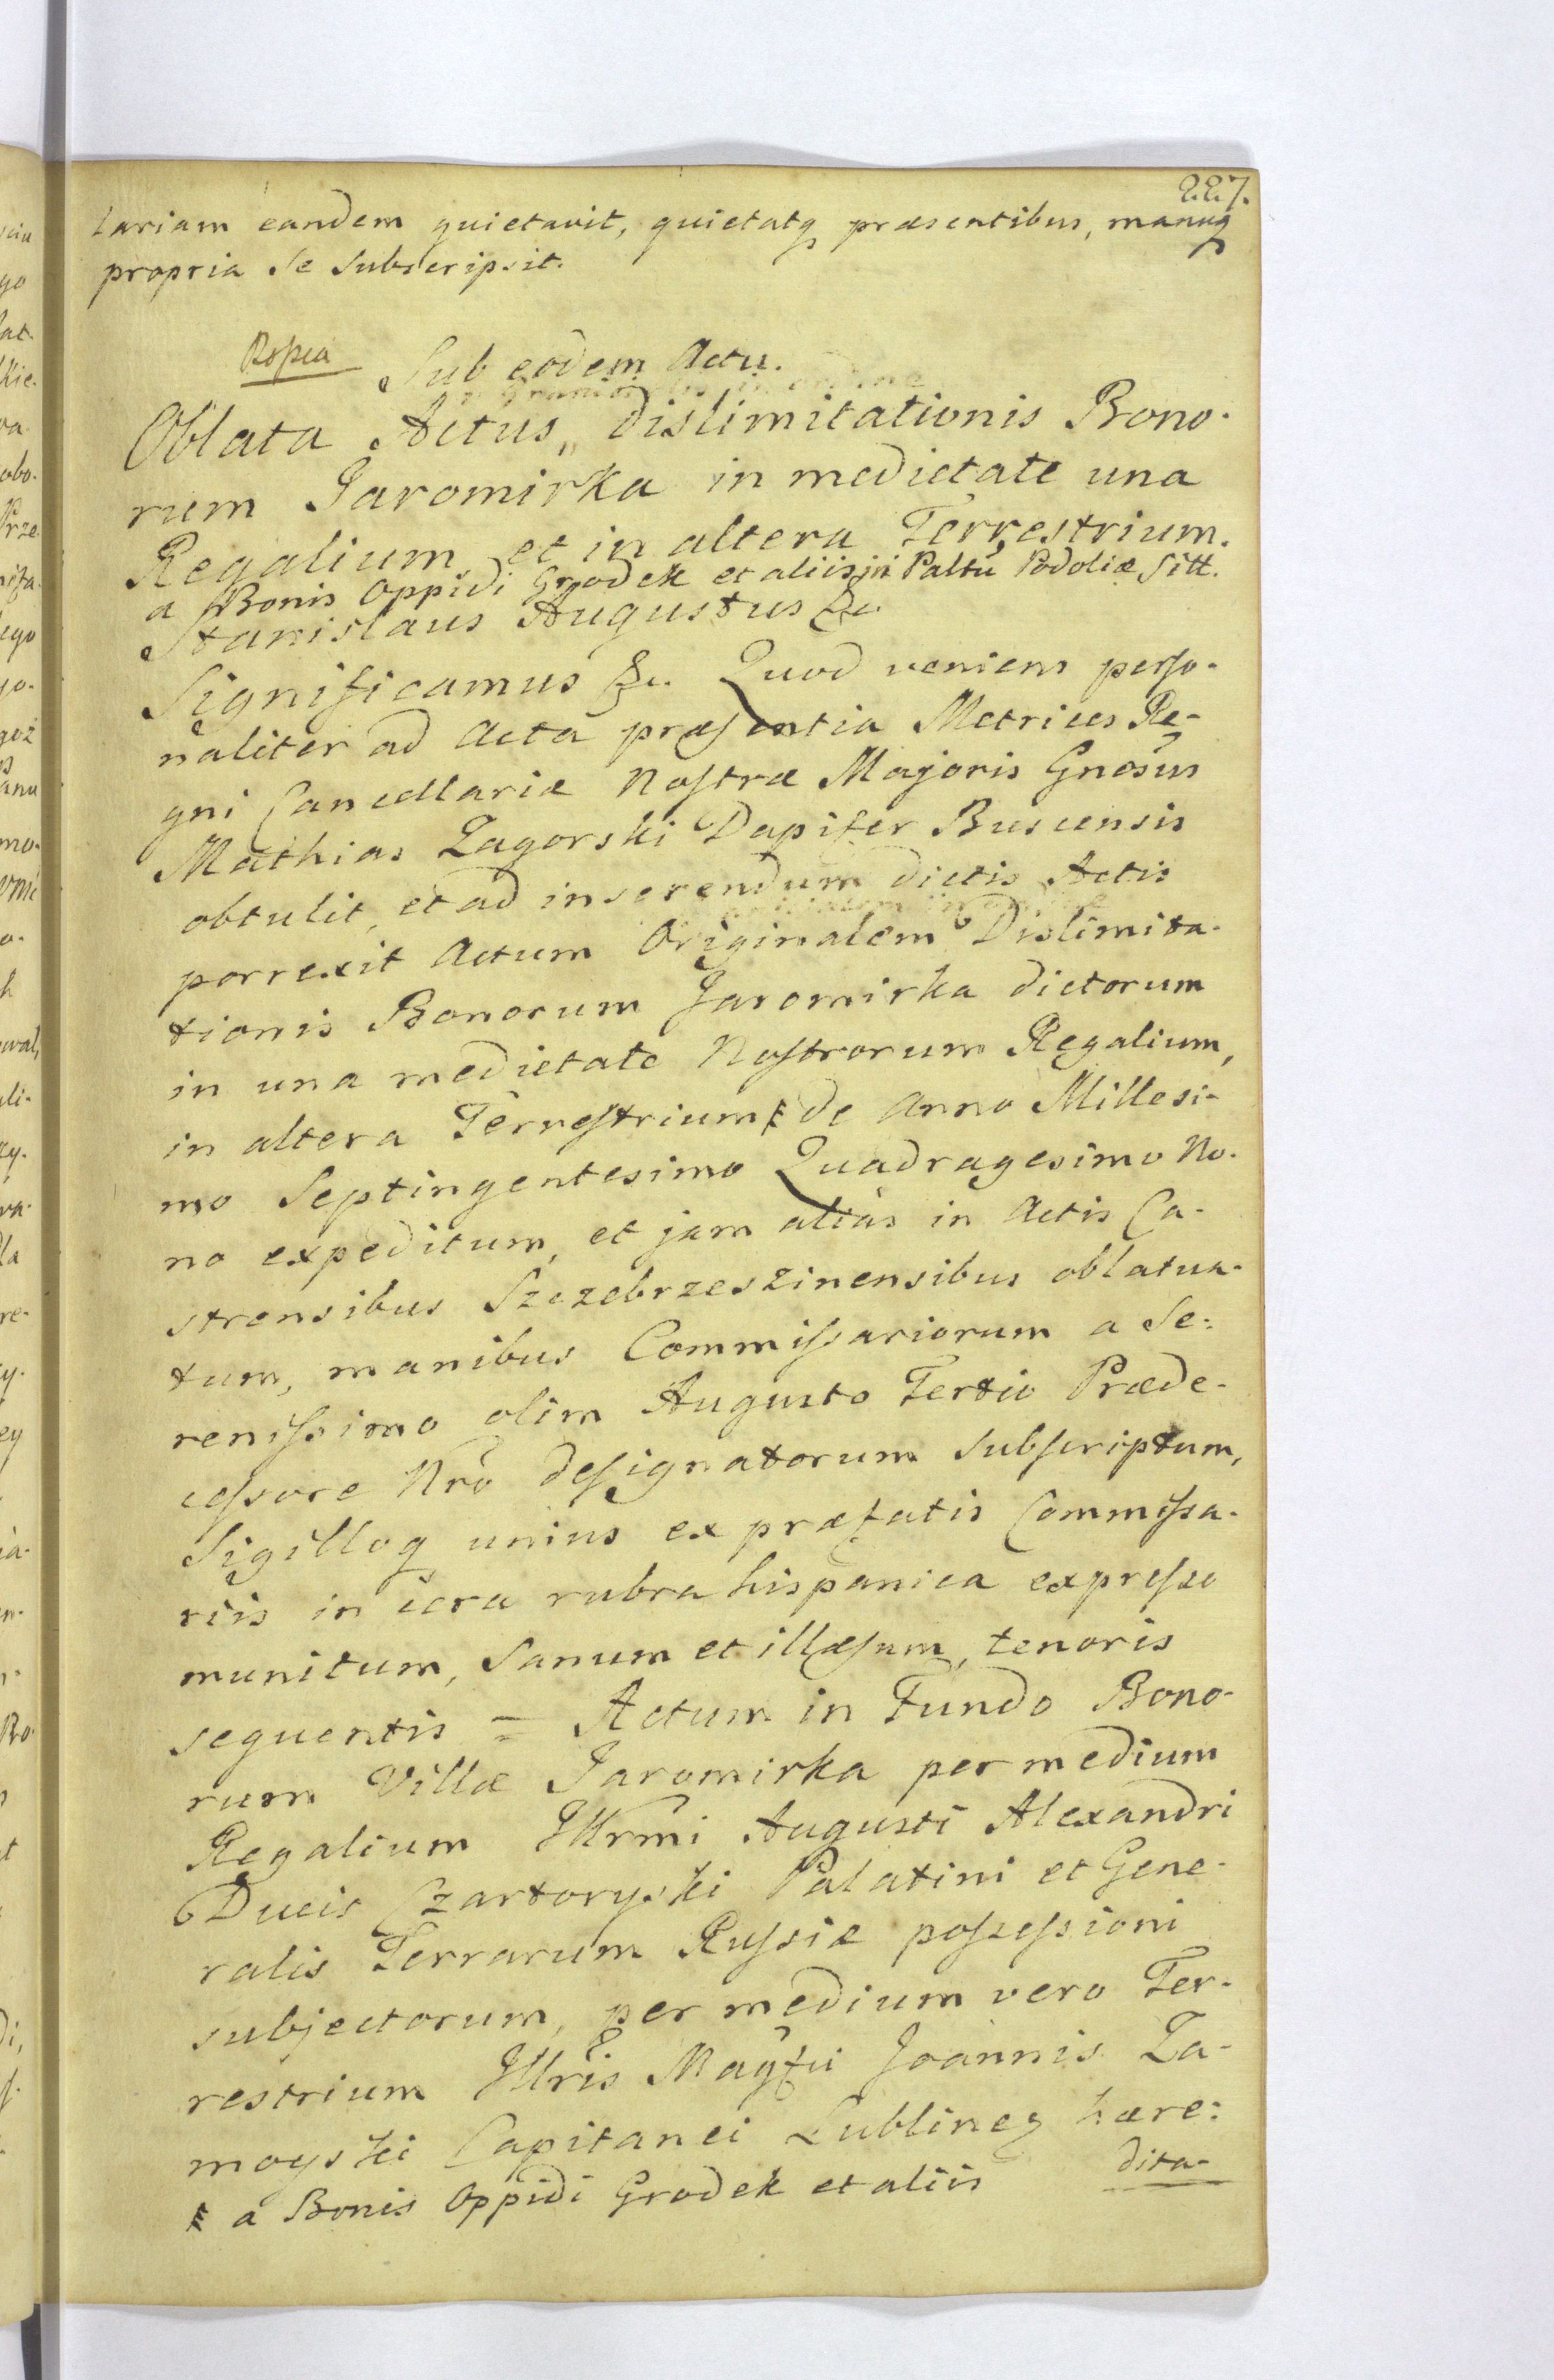 227.
tariam eandem quietavit, quietatq præsentibus, manuq
propria se subscripsit.
Sub eodem Actu.
Oblata Actus, dislimitationis Bono-
rum Jaromirka in medietate una
Regalium et in altera Terrestrium.
a Bonis Oppidi Grodek et aliis in Paltu Podoliæ Sitt.
Stanislaus Augustus &c.
Significamus &c. Quod veniens perso-
naliter ad Acta præsentia Metrices Re-
gni Cancellariæ Nostræ Majoris Gnosus
Mathias Zagorski Dapifer Buscensis
obtulit, et ad inserendum dictis Actis
porrexit Actum Originalem Dislimita-
tionis Bonorum Jaromirka dictorum
in una medietate Nostrorum Regalium,
in altera Terrestrium ⁂ de Anno Millesi-
mo Septingentesimo Quadragesimo No-
no expeditum, et jam alias in Actis Ca-
strensibus Szczebrzeszinensibus oblatua-
tum, manibus Commissariorum a Se-
renissimo olim Augusto Tertio Præde-
cessore Nrô designatorum subscriptum,
Sigilloq unius ex præfatis Commissa-
riis in cera rubra hispanica expresso
munitum, sanum et illæsum, tenoris
sequentis = Actum in Fundo Bono-
rum Villæ Jaromirka per medium
Regalium Illrmi Augusti Alexandri
Ducis Czartoryski Palatini et Gene-
ralis Terrarum Russiæ possessioni
subjectorum, per medium vero Ter-
restrium Illris Magfci Joannis Za-
moyski Capitanei Lublineȝ hære-
dita-
⁂ a Bonis Oppidi Grodek et aliis